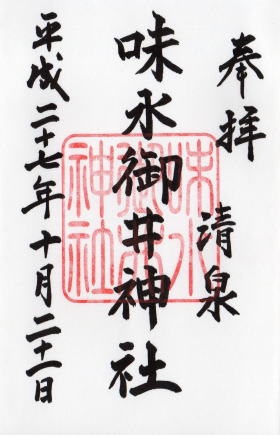 奉拝
清泉
味水御井神社
平成二十七年十月二十一日
味水
御井
神社